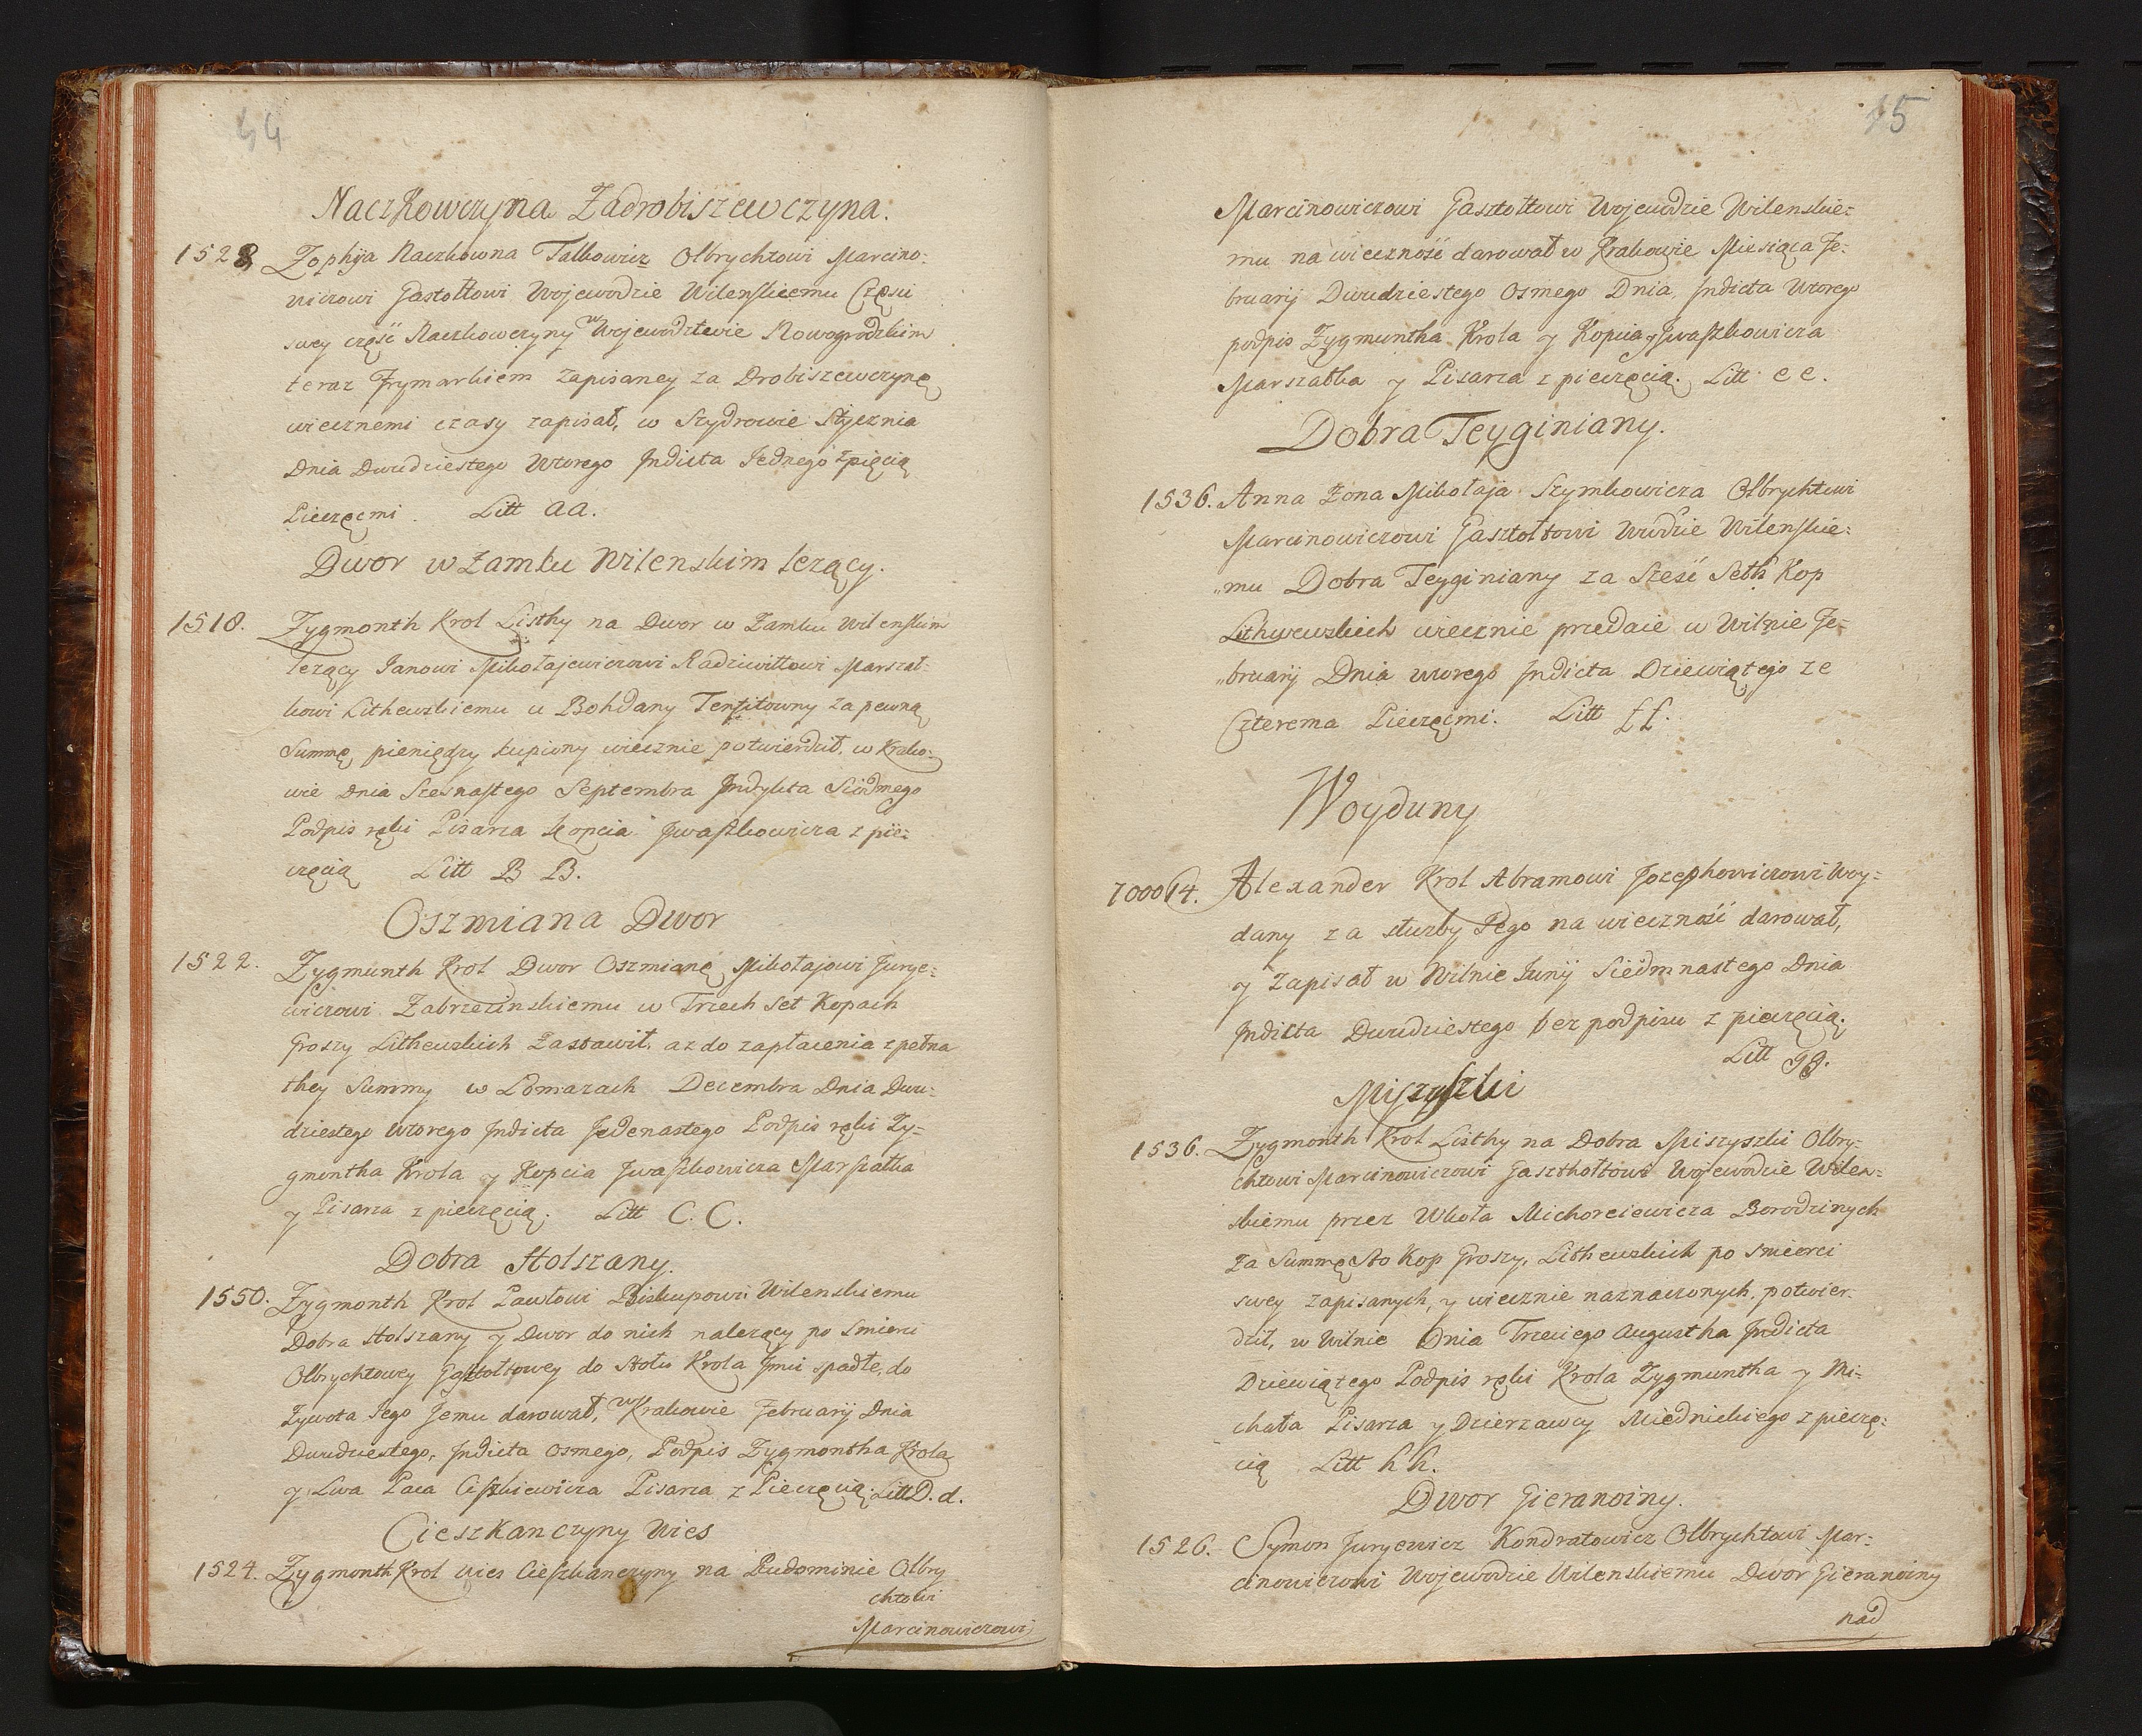 44
Naczkowczyna Zadrobiszewczyna.
1528 Zophija Naczkowna Talkowicz Olbrychtowi Marcino=
wiczowi Gastołtowi Wojewodzie Wilenskiemu Częsci
swey część Naczkowczyny w Wojewodztwie Nowogrodzkim
teraz Frymarkiem zapisaney za Drobiszewczynę
wiecznemi czasy zapisał, w Szydrowie Stycznia
Dnia Dwudziestego Wtorego Indicta Jednego z pięcią
Pieczęcmi. Litt aa.
Dwor w Zamku Wilenskim lezący.
1518. Zygmonth Krol Listhy na Dwor w Zamku Wilenskim
lezący Janowi Mikołajewiczowi Radziwiłłowi Marszał=
kowi Lithewskiemu u Bohdany Tentitowny za pewną
Summę pieniędzy kupiony wiecznie potwierdził. w Krako=
wie Dnia Szesnastego Septembra Indykta Siodmego
Podpis ręki Pisarza Kopcia Iwaszkowicza z pie=
częcią Litt B B.
Oszmiana Dwor
1522. Zygmunth Krol Dwor Oszmianę Mikołajowi Jurye=
wiczowi Zabrzezinskiemu w Trzech Set Kopach
Groszy Lithewskich Zastawił. az do zapłacenia z pełna
they Summy w Lomazach Decembra Dnia Dwu=
dziestego Wtorego Indicta Jedenastego Podpis ręki Zy=
gmontha Krola y Kopcia Iwaszkowicza Marszałka
y Pisarza z pieczęcią. Litt C. C.
Dobra Holszany.
1550. Zygmonth Krol Pawłowi Biskupowi Wilenskiemu
Dobra Holszany y Dwor do nich nalezący po Smierci
Olbrychtowey Gasztołtowey do Stołu Krola Jmci spadłe, do
Zywota Jego Jemu darował, w Krakowie Februarij Dnia
Dwudziestego, Indicta osmego, Podpis Zygmontha Krola
y Lwa Paca Ciszkiewicza Pisarza z Pieczęcią. Litt D. d.
Cieszkanczyny Wies
1524. Zygmonth Krol wies Cieszkanczyny na Rudominie Olbry
chtowi
Marcinowiczowi
15
Marcinowiczowi Gasztołtowi Wojewodzie Wilenskie=
mu na wieczność darował w Krakowie Miesiąca Fe=
bruarij Dwudziestego Osmego Dnia, Indicta Wtorego
podpis Zygmuntha Krola y Kopcia Iwaszkowicza
Marszałka y Pisarza z pieczęcią. Litt e e.
Dobra Teyginiany.
1536. Anna Zona Mikołaja Szymkowicza Olbrychtowi
Marcinowiczowi Gasztołtowi Wwdzie Wilenskie=
„mu Dobra Teyginiany za Sześć Seth Kop
Lithwewskich wiecznie przedaie w Wilnie Fe=
„bruarij Dnia wtorego Indicta Dziewiątego ze
Czterema Pieczęcmi. Litt ff.
Woyduny
7000(14. Alexander Krol Abramowi Jozephowiczowi Woy=
dany za służby Jego na wieczność darował,
y zapisał w Wilnie Junij Siedmnastego Dnia
Indicta Dwudziestego bez podpisu z pieczęcią.
Litt gg.
Miszyszki
1536. Zygmonth Krol Listhy na Dobra Miszyszki Olbry=
chtowi Marcinowiczowi Gaszthołtowi Wojewodzie Wilen=
skiemu przez Wkoła Michorciewicza Borodzinych
za Summę Sto Kop Groszy, Lithewskich po smierci
swey zapisanych, y wiecznie naznaczonych, potwier=
dził, w Wilnie Dnia Trzeciego Augustha Indicta
Dziewiątego Podpis ręki Krola Zygmuntha y Mi=
chała Pisarza y Dzierzawcy Miednickiego z pieczę=
cią Litt h h.
Dwor Gieranoiny.
1526. Symon Juryewicz Kondratowicz Olbrychtowi Mar=
cinowiczowi Wojewodzie Wilenskiemu Dwor Gieranoiny
nad